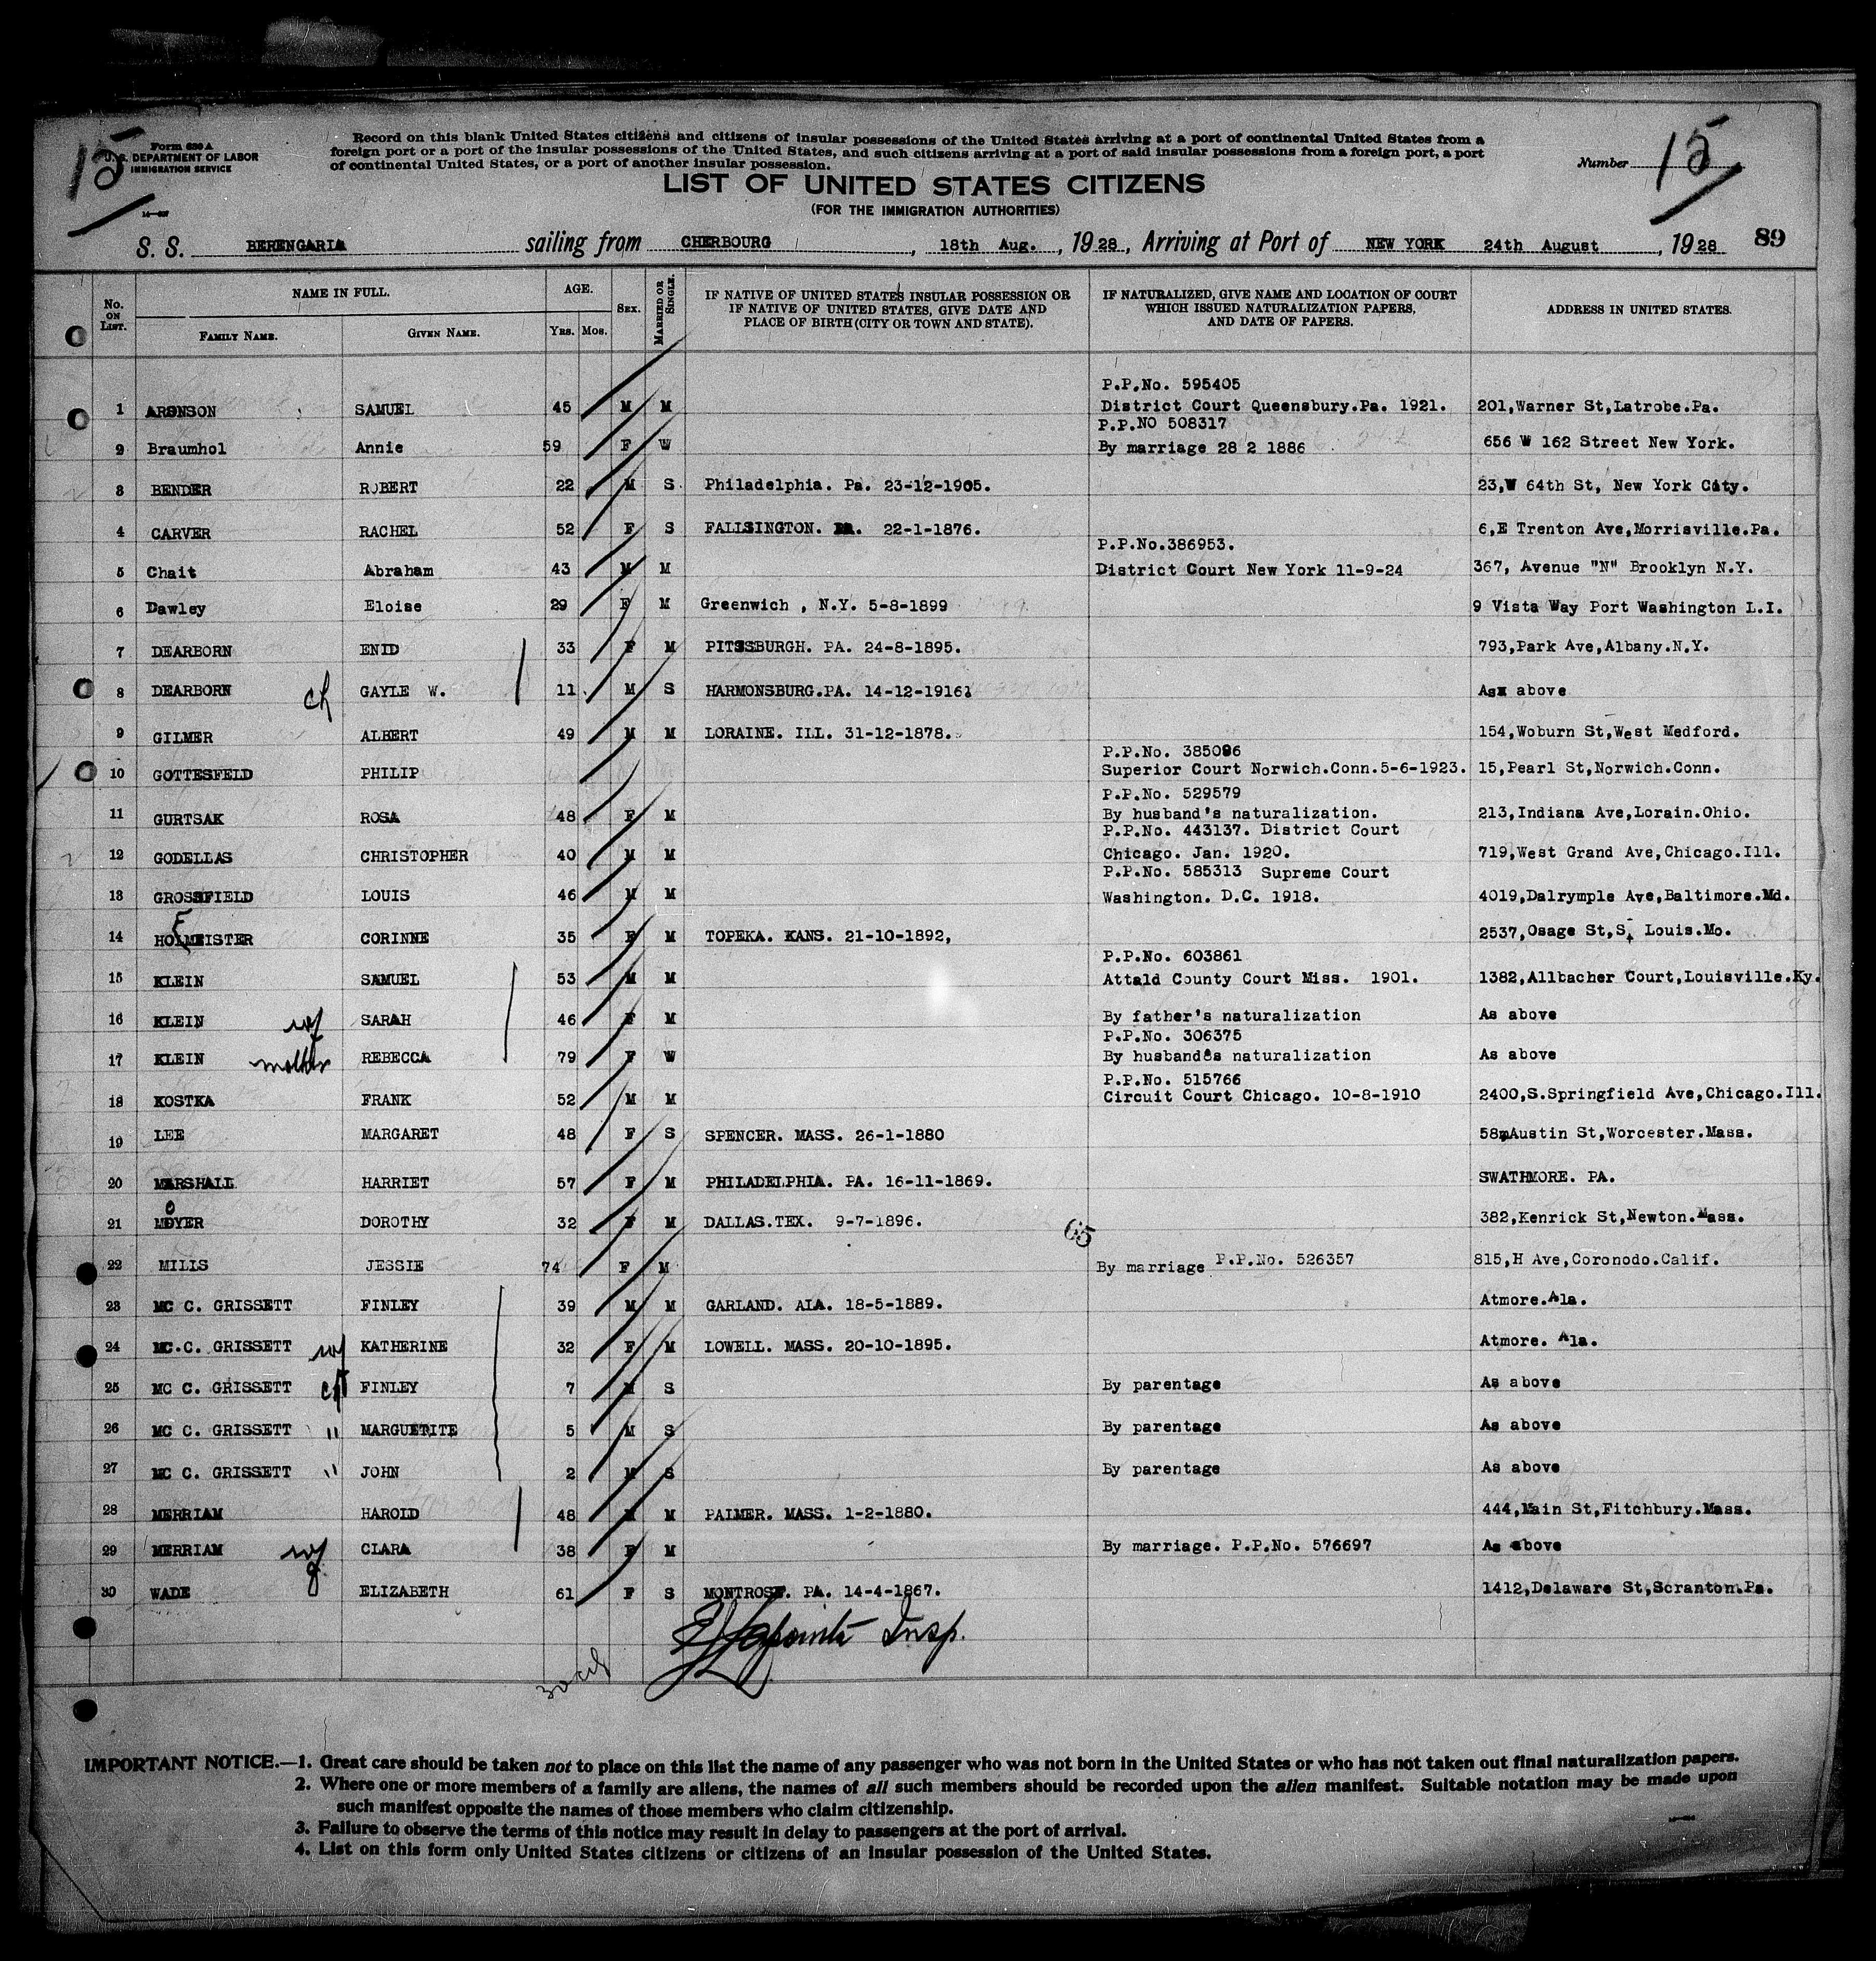 15
Form 630 A
U. S. DEPARTMENT OF LABOR
IMMIGRATION SERVICE
Record on this blank United States citizens and citizens of insular possessions of the United States arriving at a port of continental United States from a
foreign port or a port of the insular possessions of the United States, and such citizens arriving at a port of said insular possessions from a foreign port, a port
of continental United States, or a port of another insular possession.
Number 15
LIST OF UNITED STATES CITIZENS
(FOR THE IMMIGRATION AUTHORITIES)
S. S. BERENGARIA sailing from CHERBOURG, 18th Aug., 1928, Arriving at Port of NEW YORK 24th August, 1928 89
No. ON LIST. NAME IN FULL. FAMILY NAME. GIVEN NAME. AGE. YRS. MOS. SEX. MARRIED OR SINGLE. IF NATIVE OF UNITED STATES INSULAR POSSESSION OR IF NATIVE OF UNITED STATES, GIVE DATE AND PLACE OF BIRTH (CITY OR TOWN AND STATE). IF NATURALIZED, GIVE NAME AND LOCATION OF COURT WHICH ISSUED NATURALIZATION PAPERS, AND DATE OF PAPERS. ADDRESS IN UNITED STATES.
P.P.No. 595405
1 ARONSON SAMUEL 45 M M District Court Queensbury.Pa. 1921. 201,Warner St,Latrobe.Pa.
P.P.NO 508317
2 Braumhol Annie 59 F W By marriage 28 2 1886 656 W 162 Street New York.
3 BENDER ROBERT 22 M S Philadelphia. Pa. 23-12-1905. 23,W 64th St, New York City.
4 CARVER RACHEL 52 F S FALLSINGTON. PA. 22-1-1876. 6,E Trenton Ave,Morrisville.Pa.
P.P.No.386953.
5 Chait Abraham 43 M M District Court New York 11-9-24 367, Avenue "N" Brooklyn N.Y.
6 Dawley Eloise 29 F M Greenwich , N.Y. 5-8-1899 9 Vista Way Port Washington L.I.
7 DEARBORN ENID 33 F M PITSSBURGH. PA. 24-8-1895. 793,Park Ave,Albany.N.Y.
8 DEARBORN ch GAYLE W. 11 M S HARMONSBURG.PA. 14-12-1916 As above
9 GILMER ALBERT 49 M M LORAINE. ILL. 31-12-1878. 154,Woburn St,West Medford.
P.P.No. 385096
10 GOTTESFELD PHILIP Superior Court Norwich.Conn.5-6-1923. 15,Pearl St,Norwich.Conn.
P.P.No. 529579
11 GURTSAK ROSA 48 F M By husband's naturalization. 213,Indiana Ave,Lorain.Ohio.
P.P.No. 443137. District Court
12 GODELLAS CHRISTOPHER 40 M M Chicago. Jan. 1920. 719,West Grand Ave,Chicago.Ill.
P.P.No. 585313 Supreme Court
13 GROSSFIELD LOUIS 46 M M Washington. D.C. 1918. 4019,Dalrymple Ave,Baltimore.Md.
14 HOFMEISTER CORINNE 35 F M TOPEKA. KANS. 21-10-1892, 2537,Osage St,S, Louis.Mo.
P.P.No. 603861
15 KLEIN SAMUEL 53 M M Attald County Court Miss. 1901. 1382,Allbacher Court,Louisville.Ky.
16 KLEIN wf SARAH 46 F M By father's naturalization As above
P.P.No. 306375
17 KLEIN mother REBECCA 79 F W By husbandes naturalization As above
P.P.No. 515766
18 KOSTKA FRANK 52 M M Circuit Court Chicago. 10-8-1910 2400,S.Springfield Ave,Chicago.Ill.
19 LEE MARGARET 48 F S SPENCER. MASS. 26-1-1880 58,Austin St,Worcester.Mass.
20 MARSHALL HARRIET 57 F M PHILADELPHIA. PA. 16-11-1869. SWATHMORE. PA.
21 MOYER DOROTHY 32 F M DALLAS.TEX. 9-7-1896. 382,Kenrick St,Newton.Mass.
65
22 MILIS JESSIE 74 F M By marriage P.P.No. 526357 815,H Ave,Coronodo.Calif.
23 MC C. GRISSETT FINLEY 39 M M GARLAND. ALA. 18-5-1889. Atmore.Ala.
24 MC.C. GRISSETT wf KATHERINE 32 F M LOWELL. MASS. 20-10-1895. Atmore. Ala.
25 MC C. GRISSETT ch FINLEY 7 M S By parentage As above
26 MC C. GRISSETT " MARGUETITE 5 M S By parentage As above
27 MC C. GRISSETT " JOHN 2 M S By parentage As above
28 MERRIAM HAROLD 48 M M PALMER. MASS. 1-2-1880. 444,Main St,Fitchbury.Mass.
29 MERRIAM wf CLARA 38 F M By marriage. P.P.No. 576697 As above
30 WADE ELIZABETH 61 F S MONTROSE. PA. 14-4-1867. 1412,Delaware St,Scranton.Pa.
Lapointe Insp.
IMPORTANT NOTICE.—1. Great care should be taken not to place on this list the name of any passenger who was not born in the United States or who has not taken out final naturalization papers.
2. Where one or more members of a family are aliens, the names of all such members should be recorded upon the alien manifest. Suitable notation may be made upon
such manifest opposite the names of those members who claim citizenship.
3. Failure to observe the terms of this notice may result in delay to passengers at the port of arrival.
4. List on this form only United States citizens or citizens of an insular possession of the United States.